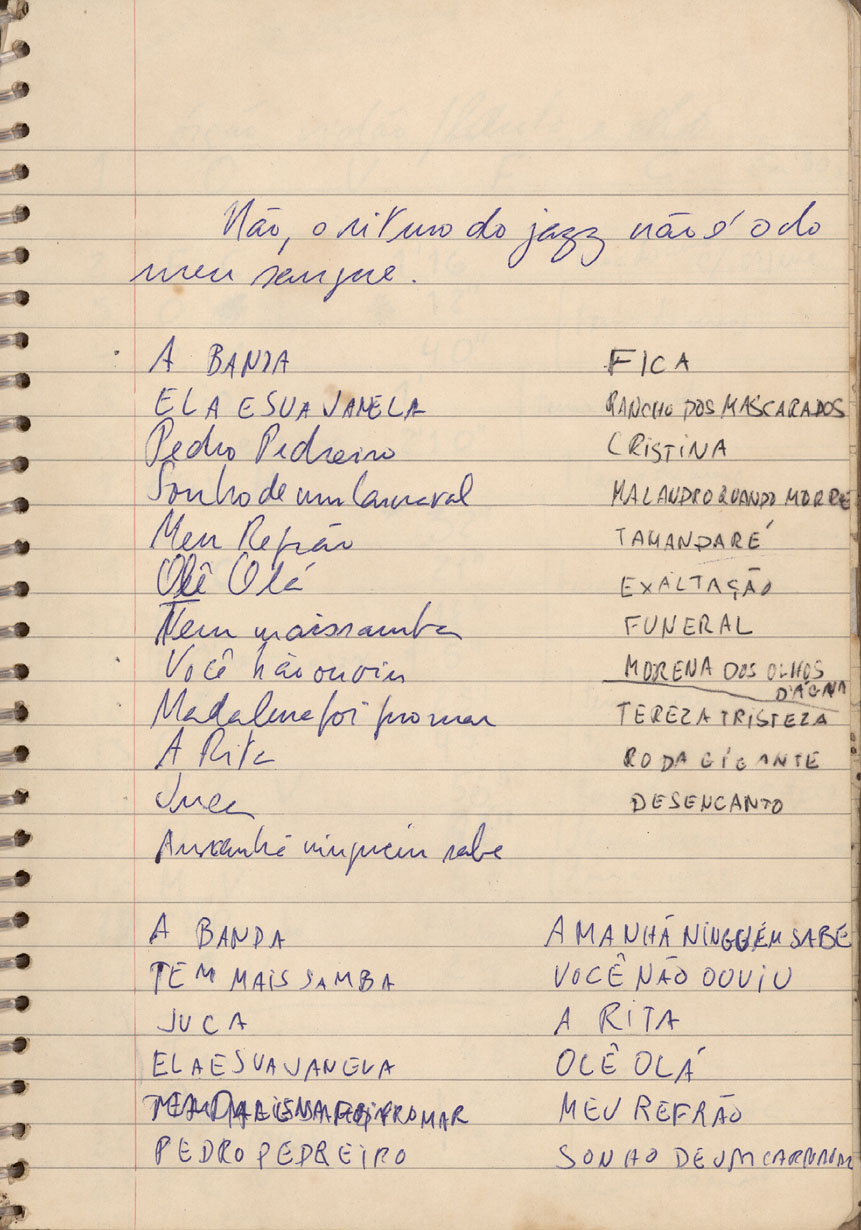 Não, o ritmo do jazz não é o do
meu sangue.
A BANDA
ELA E SUA JANELA
Pedro Pedreiro
Sonho de um Carnaval
Meu Refrão
Olê Olá
Tem mais samba
Você não ouviu
Madalena foi pro mar
A Rita
Juca
Amanhã ninguém sabe
FICA
RANCHO DOS MASCARADOS
CRISTINA
MALANDRO QUANDO MORRE
TAMANDARÉ
EXALTAÇÃO
FUNERAL
MORENA DOS OLHOS
D'ÁGUA
TEREZA TRISTEZA
RODA GIGANTE
DESENCANTO
A BANDA
TEM MAIS SAMBA
JUCA
ELA E SUA JANELA
PRO MAR
PEDRO PEDREIRO
AMANHÃ NINGUÉM SABE
VOCÊ NÃO OUVIU
A RITA
OLÊ OLÁ
MEU REFRÃO
SONHO DE UM CARNAVAL